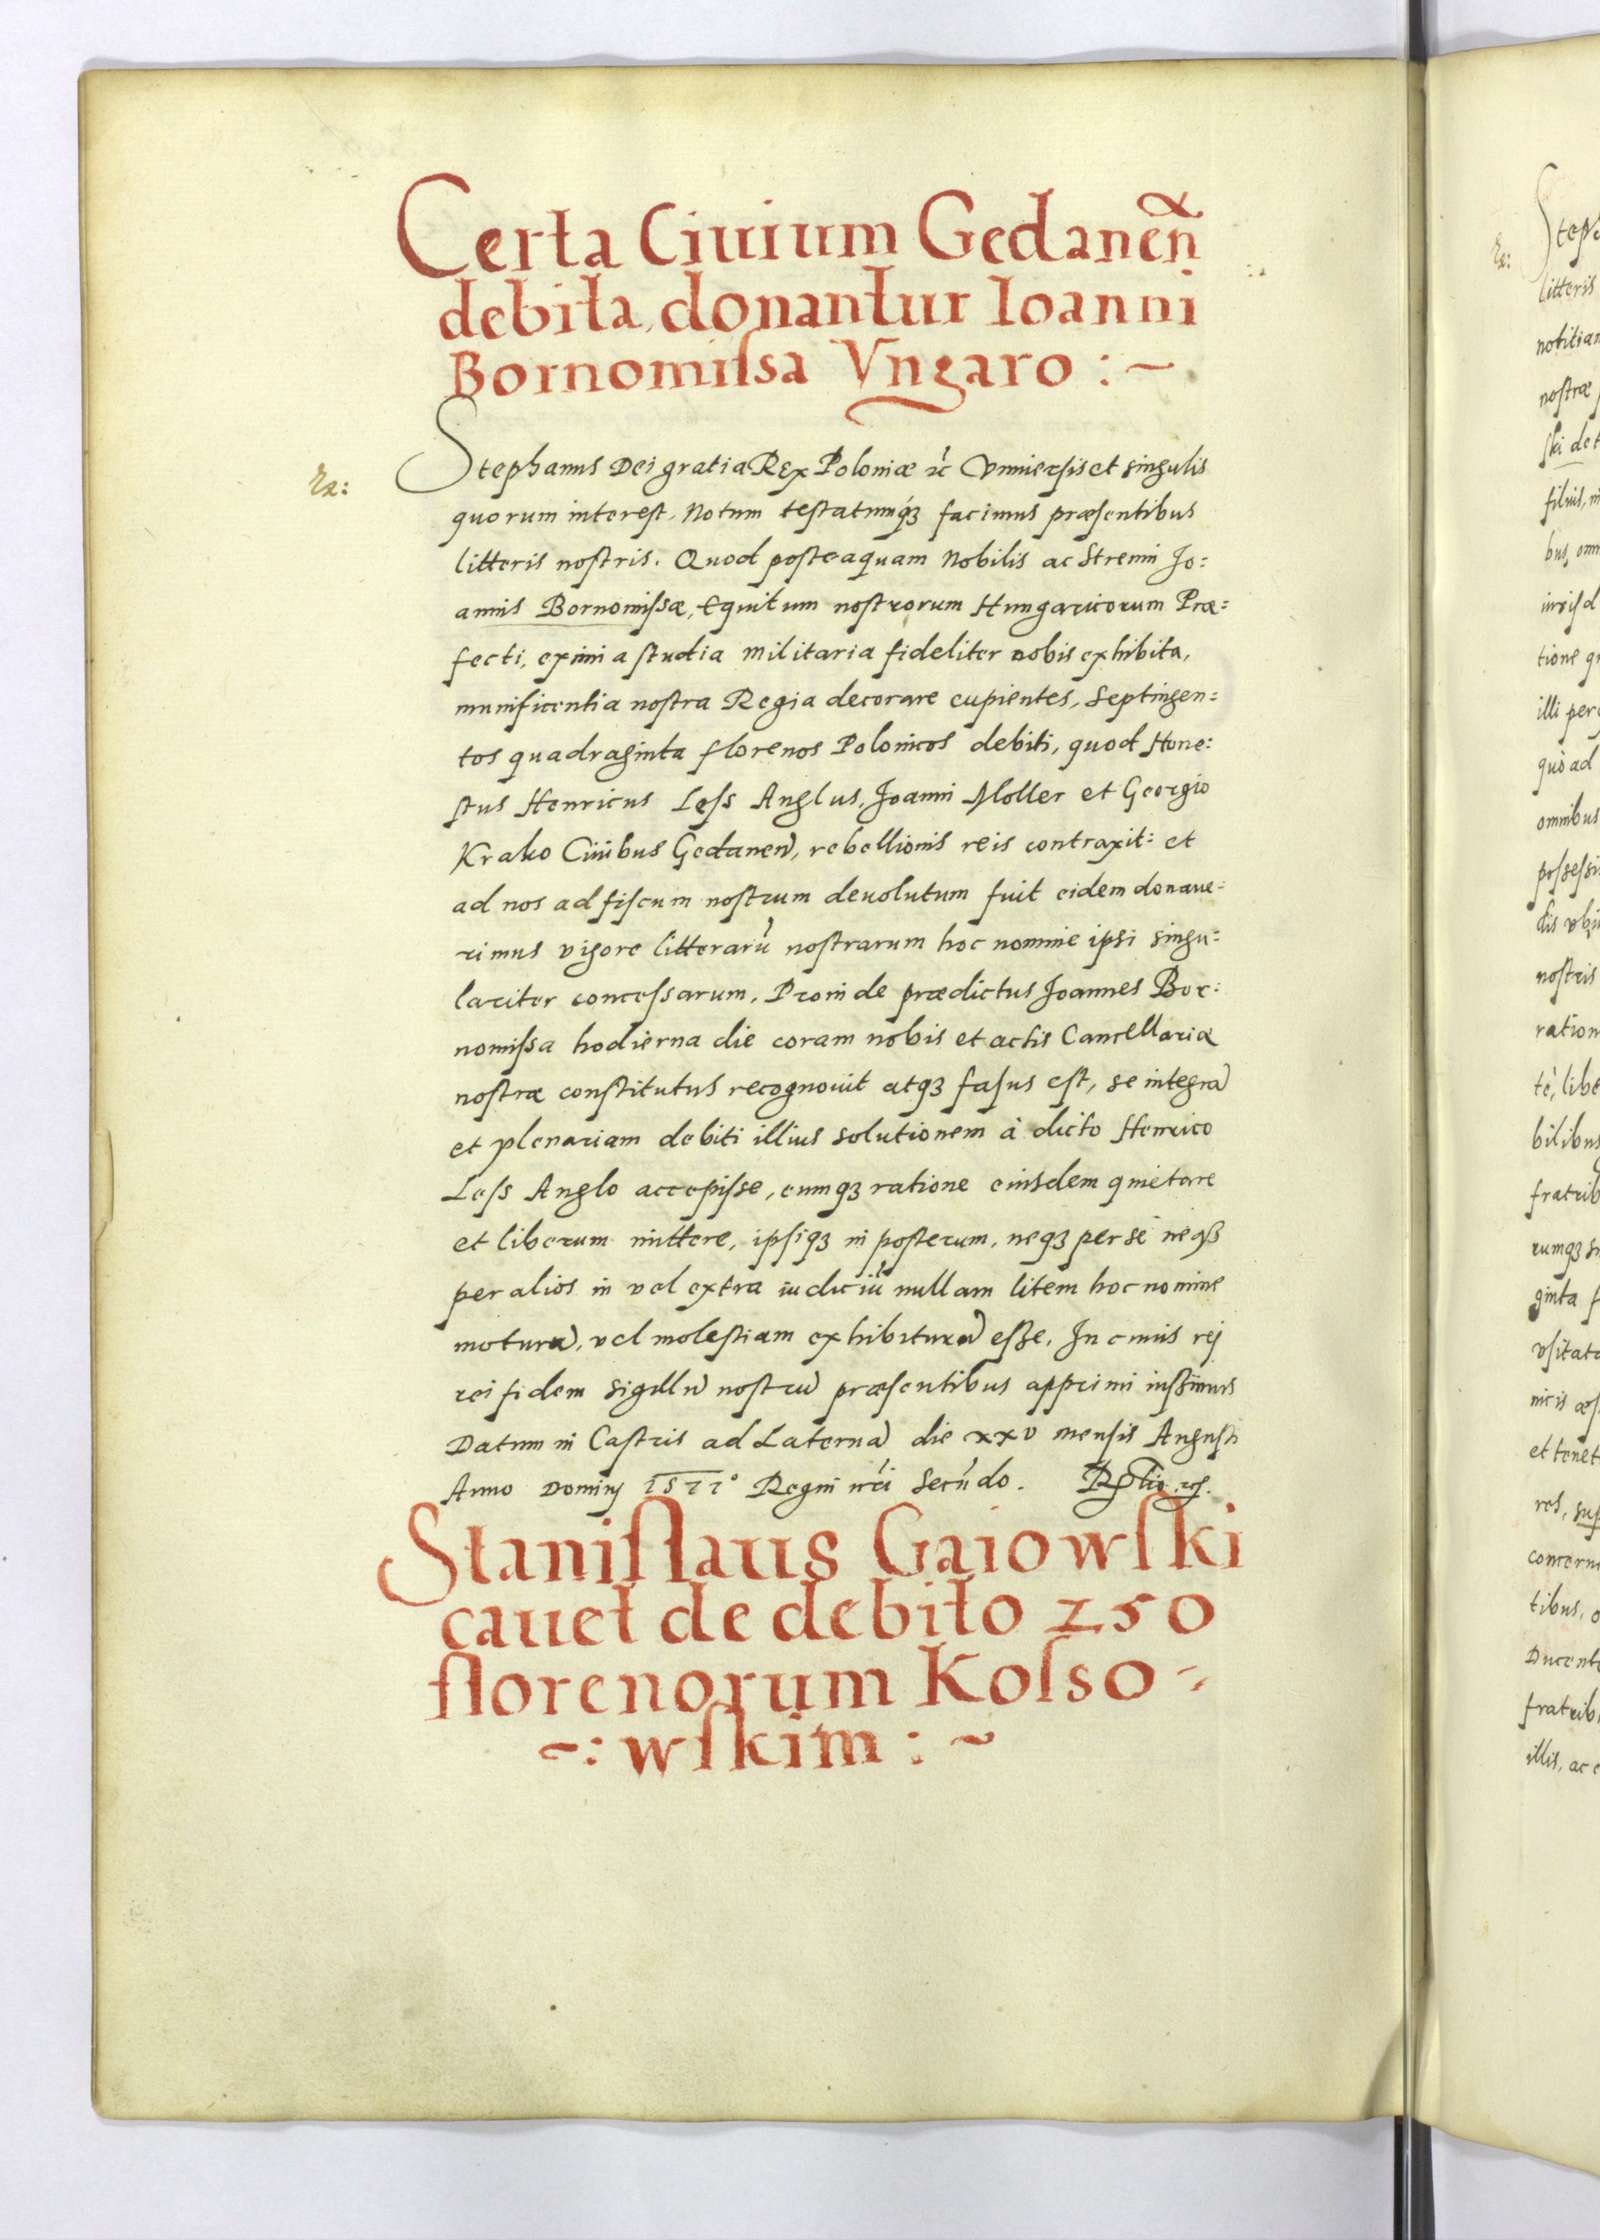 Certa Ciuium Gedaneñ
debita, donantur Ioanni
Bornomissa Vngaro : ~
Stephanus Dei gratia Rex Poloniæ etc Vniuersis et singulis
quorum interest, Notum testatumq₃ facimus præsentibus
litteris nostris. Quod posteaquam Nobilis ac Strenui Jo:
annis Bornomissæ, Equitum nostrorum Hungaricorum Præ:
fecti, eximia studia militaria fideliter nobis exhibita,
munificentia nostra Regia decorare cupientes, Septingen:
tos quadraginta florenos Polonicos debiti, quod Hone:
stus Henricus Less Anglus, Joanni Moller et Georgio
Krako Ciuibus Gedaneñ, rebellionis reis contraxit: et
ad nos ad fiscum nostrum deuolutum fuit eidem donaue:
rimus vigore litterarū nostrarum hoc nomine ipsi singu:
lariter concessarum. Proinde prædictus Joannes Bor:
nomissa hodierna die coram nobis et actis Cancellariæ
nostræ constitutus recognouit atq₃ fassus est, se integrā
et plenariam debiti illius solutionem à dicto Henrico
Less Anglo accepisse, eumq₃ ratione eiusdem quietare
et liberum mittere, ipsiq₃ in posterum, neq₃ per se neq₃
per alios in vel extra iudiciū nullam litem hoc nomine
moturū, vel molestiam exhibiturū esse. In cuius rei
rei fidem sigillū nostrū præsentibus apprimi iussimus
Datum in Castris ad Laternā die xxv mensis Augusti
Anno Dominj 1577° Regni nr̄i Secūdo.
Stanislaus Gaiowski
cauet de debito 250
florenorum Kosso -
~: wskim : ~
Steph
litteris
notitiam
nostræ
ski det
filius,
bus, omn
iurisd
tione
illi per
quo ad
omnibus
possessi
dis vbi
nostris
ration
te, libe
bilibus
fratrib
rumq₃
ginta f
vsitata
nicis
et tenet
res, sup
concern
tibus,
Ducent
fratrib
illis, ac